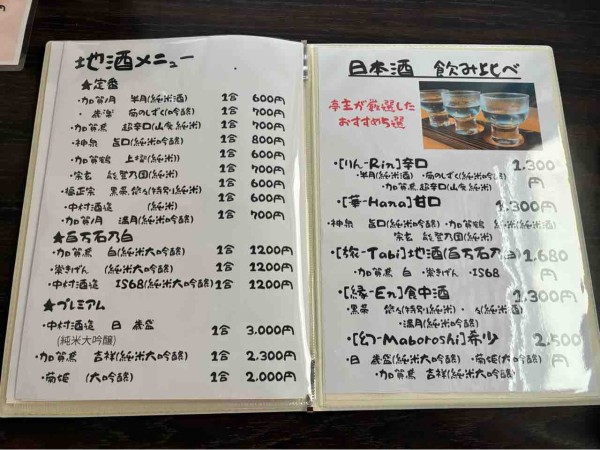 地酒メニュー
★定番
・加賀ノ月 半月(純米酒) 1合 600円
・歳滋 菊のしずく(吟醸) 1合 700円
・加賀鳶 超辛口(山食純米) 1合 700円
・神泉 旨口(純米吟醸) 1合 800円
・加賀鶴 上撰 1合 600円
・宗玄 能登乃国(純米) 1合 600円
・福正宗 黒茶 悠々(特別純米) 1合 600円
・中村酒造 (純米) 1合 600円
・加賀ノ月 満月(純米吟醸) 1合 700円
★百万石乃白
・加賀鳶 白(純米大吟醸) 1合 1200円
・榮きげん (純米大吟醸) 1合 1200円
・中村酒造 IS68(純米大吟醸) 1合 1200円
★プレミアム
・中村酒造 日 歳盛 1合 3.000円
(純米大吟醸)
・加賀鳶 吉祥(純米大吟醸) 1合 2.300円
・菊姫 (大吟醸) 1合 2.000円
日本酒 飲み比べ
亭主が厳選した
おすすめ5選
・[りん-Rin]辛口 1.300円
・半月(純米酒) ・菊のしずく(純米吟醸)
・加賀鳶 超辛口(山食純米)
・[華-Hana]甘口 1.300円
・神泉 旨口(純米吟醸) ・加賀鶴 純米(純米)
・宗玄 能登乃国(純米)
・[旅-Tabi]地酒(百万石乃白) 1.680円
・加賀鳶 白 ・榮きげん ・IS68
・[縁-En]食中酒 1.300円
・黒茶 悠々(特別) ・ (純米)
・満月(純米吟醸)
・[幻-Maboroshi]希少 2.500円
・日 歳盛(純米大吟醸) ・菊姫(大吟醸)
・加賀鳶 吉祥(純米大吟醸)